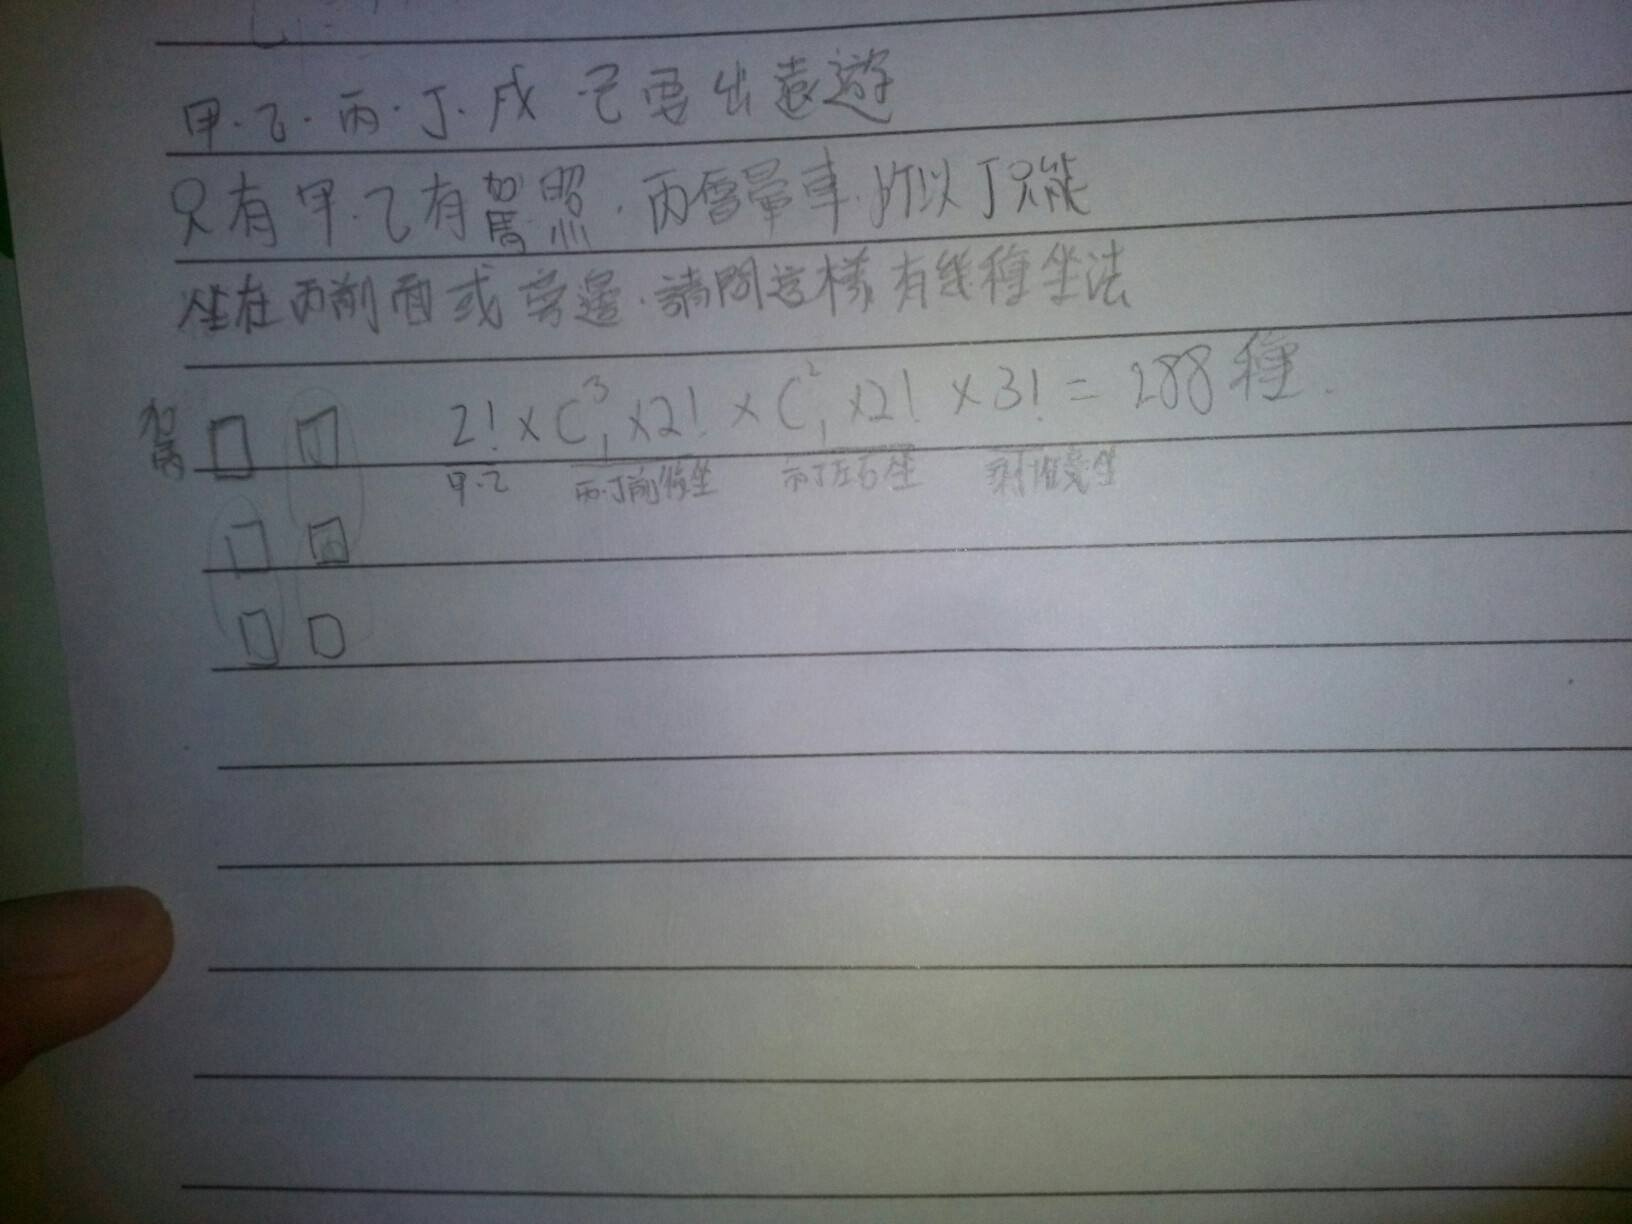 甲.乙.丙.丁.戊 己要出遠遊
只有甲.乙有駕照.丙會暈車.所以丁只能
坐在丙前面或旁邊.請問這樣有幾種坐法
駕 2! × C³₁ × 2! × C²₁ × 2! × 3! = 288種.
甲.乙 丙.丁前後坐 丙丁左右坐
丁
丙